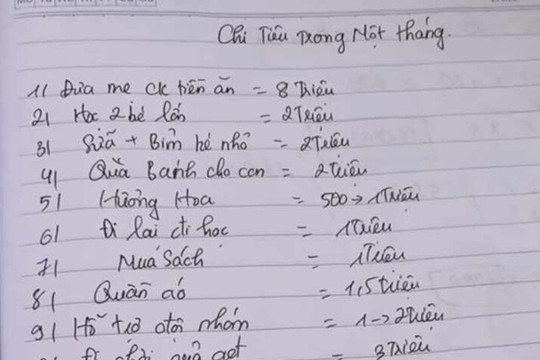 Chi Tiêu Trong Một tháng.
1/ Đưa mẹ ck tiền ăn = 8 Triệu
2/ Học 2 bé lớn = 2 Triệu
3/ Sữa + Bỉm bé nhỏ = 2 Triệu
4/ Quà Bánh cho con = 2 Triệu
5/ Hương Hoa = 500 → 1 Triệu
6/ Đi lại đi học = 1 Triệu
7/ Mua Sách = 1 Triệu
8/ Quần áo = 1,5 triệu
9/ Hỗ trợ nhóm = 1 → 2 triệu
= 3 Triệu